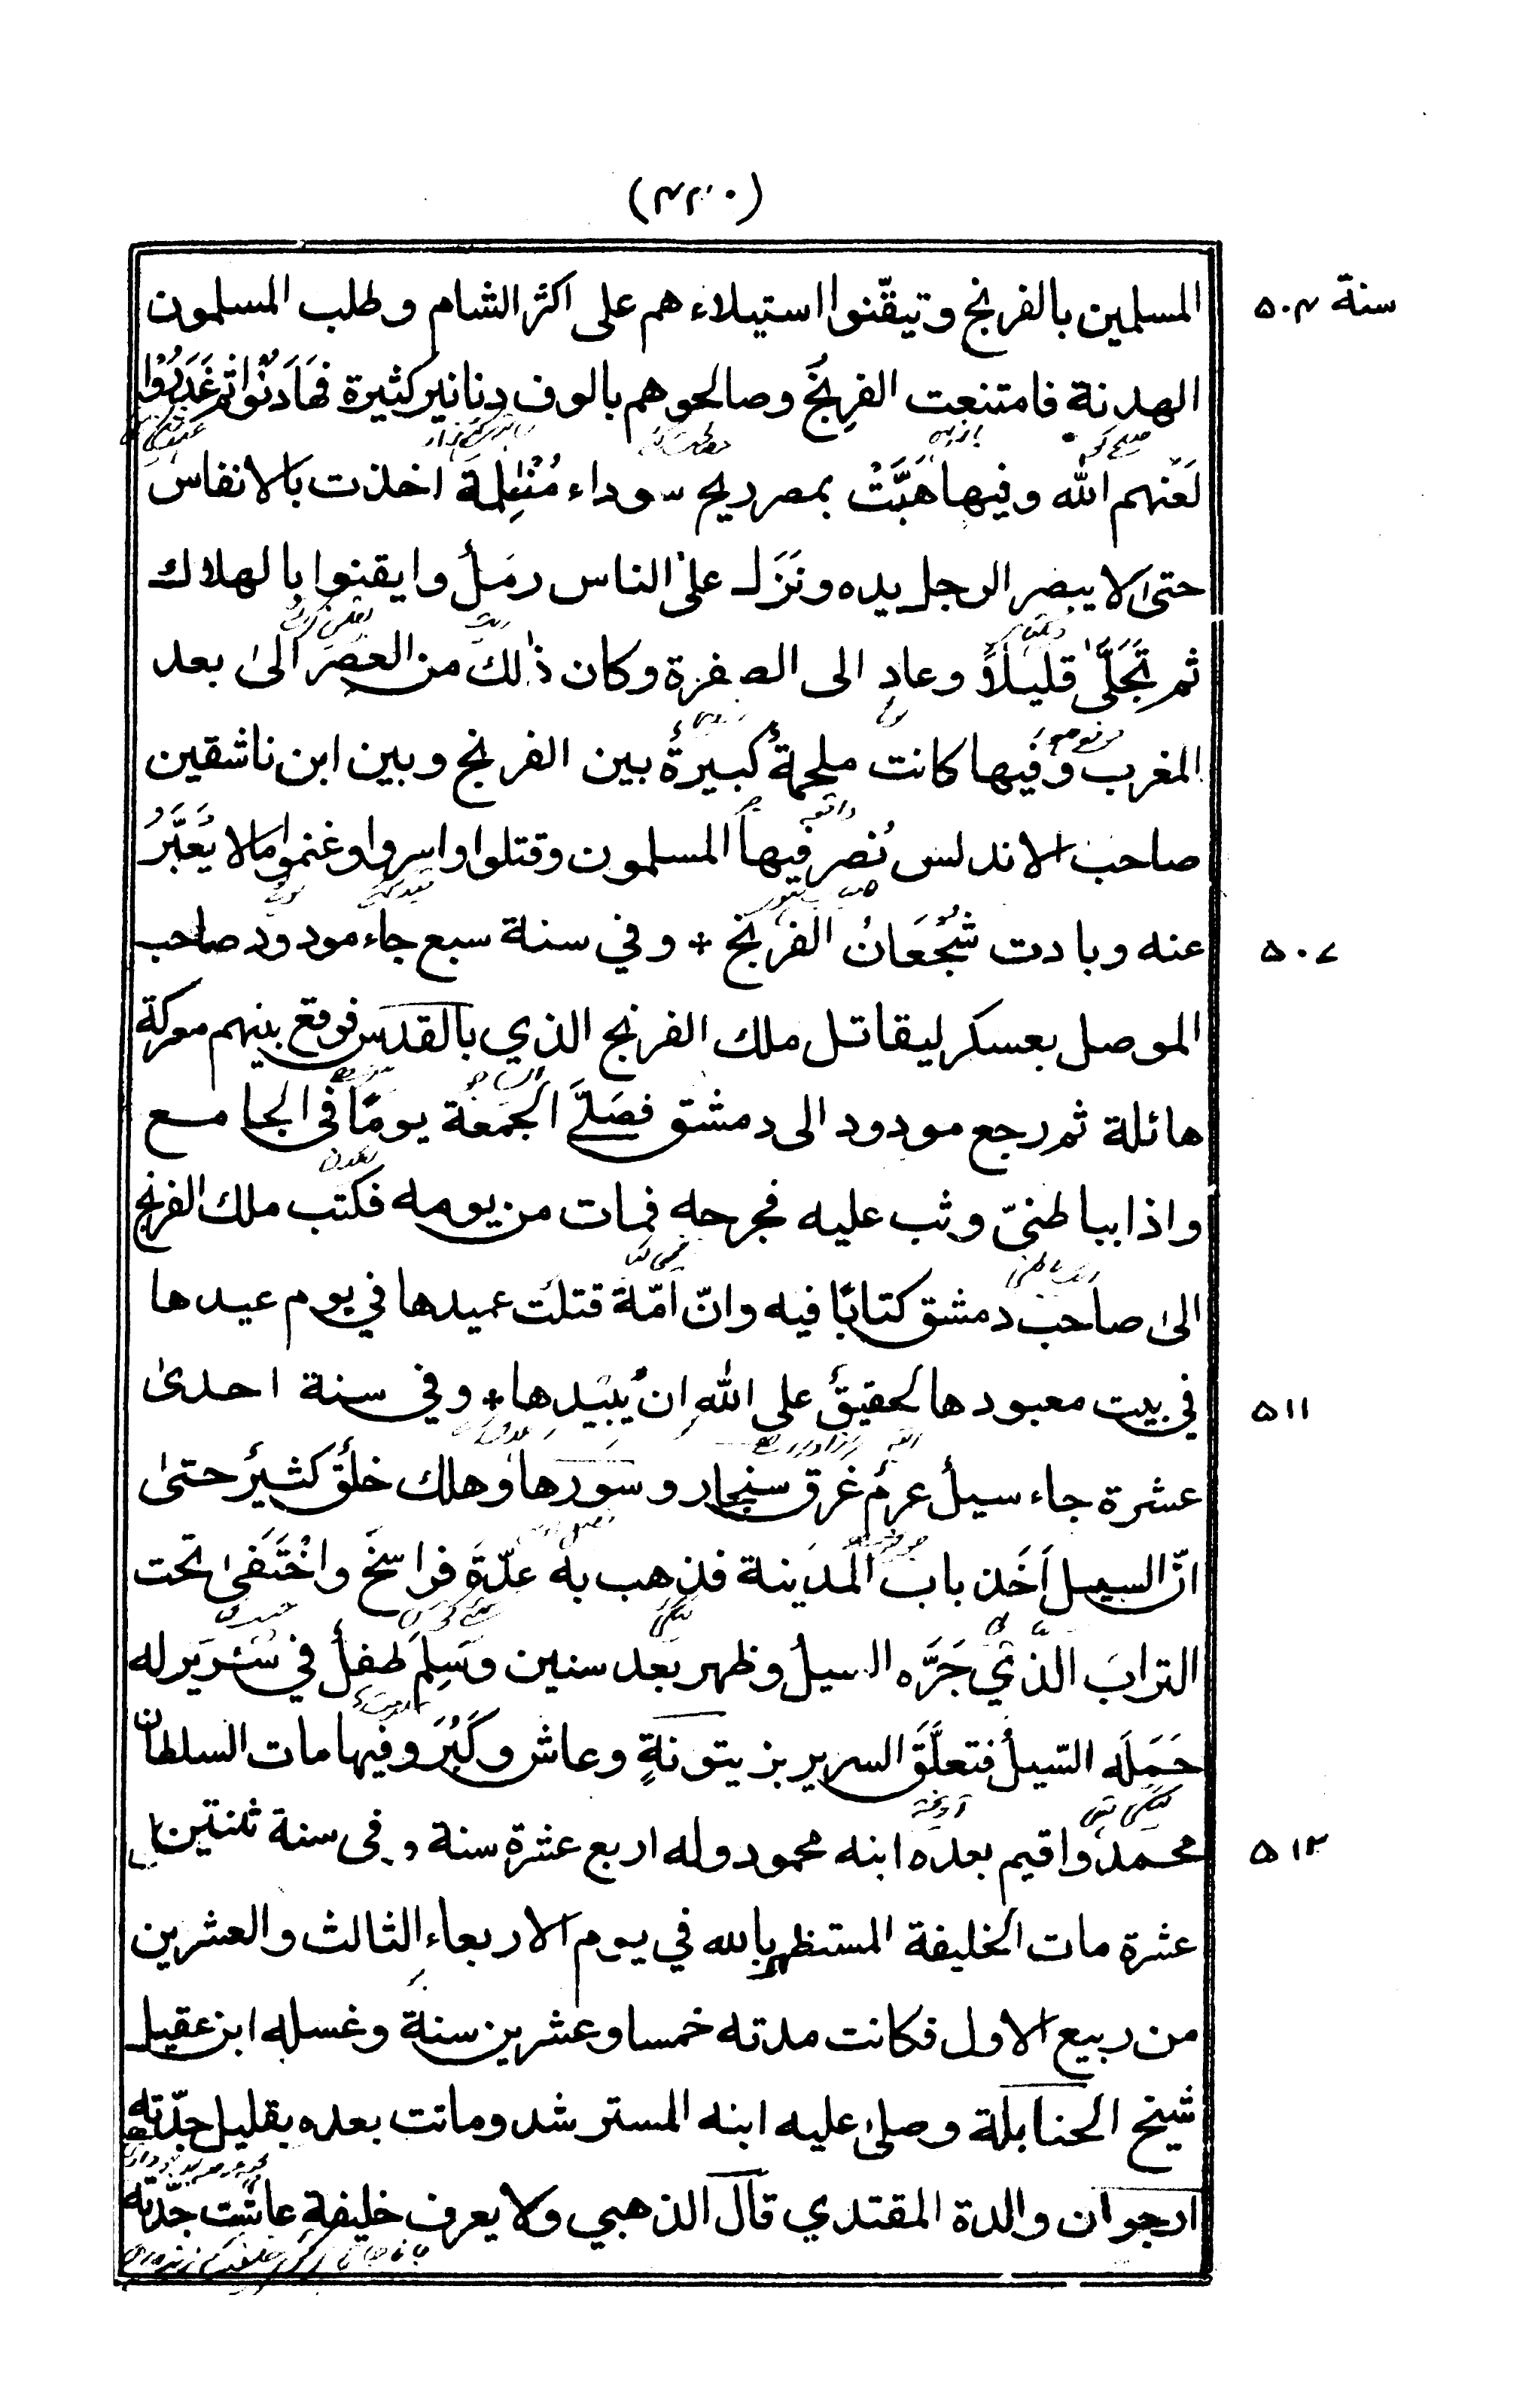 المسلمين بالفرنج وتيقّنوا استيلاء هم على اكثر الشام وطلب المسلمون
سنة ۵۰۴
الهدنة فامتنعت الفرنجُ وصالحوهم بالوف دنانير كثيرة فهَادَنُوا ثم غَدَرُوْا
لَعَنهم الله وفيها هَبَّتْ بمصر ريح سوداء مُظْلِمَة اخذت بالانفاس
حتى لا يبصر الرجل يده ونَزَل على الناس رملٌ وايقنوا بالهلاك
ثم تَجَلّٰى قليلاً وعاد الى الصفرة وكان ذٰلك من العصر الى بعد
المغرب وفيها كانت ملحمةٌ كبيرةٌ بين الفرنج وبين ابن تاشقين
صاحب الاندلس نُصر فيها المسلمون وقتلوا واسروا وغنموا مالا يُعَبَّرُ
عنه وبادت شُجْعَانُ الفرنج * وفي سنة سبع جاء مودود صاحب
۵۰۷
الموصل بعسكر ليقاتل ملك الفرنج الذي بالقدس فوقع بينهم معركة
هائلة ثم رجع مودود الى دمشق فصَلَّى الجمعة يومًا في الجامع
واذا بباطنيّ وثب عليه فجرحه فمات من يومه فكتب ملك الفرنج
الىٰ صاحب دمشق كتابًا فيه وانّ امّة قتلت عميدها في يوم عيدها
في بيت معبودها لحقيقٌ على اللهِ ان يُبيْدها * وفي سنة احدىٰ
۵۱۱
عشرة جاء سيلٌ عرمٌ غرق سنجار وسَورها وهلك خلقٌ كثيرٌ حتىٰ
انّ السيل اَخَذ باب المدينة فذهب به عدّةَ فراسخَ واخْتَفىٰ تحت
التراب الذي جَرَّه السيلُ وظهر بعد سنين وسَلِمَ طفلٌ في سَرِيرله
حَمَلَه السَّيلُ فتعلَّقَ السرير بزيتونةٍ وعاش وكَبُرَ وفيها مات السلطان
محمد واقيم بعده ابنه محمود وله اربع عشرة سنة وفى سنة ثنتين
۵۱۲
عشرة مات الخليفة المستظهر بالله في يوم الاربعاء الثالث والعشرين
من ربيع الاول فكانت مدته خمسا وعشرين سنة وغسله ابن عقيل
شيخ الحنابلة وصلى عليه ابنه المسترشد وماتت بعده بقليل جدّته
ارجوان والدة المقتدي قال الذهبي ولا يعرف خليفةٍ عاشت جدّته